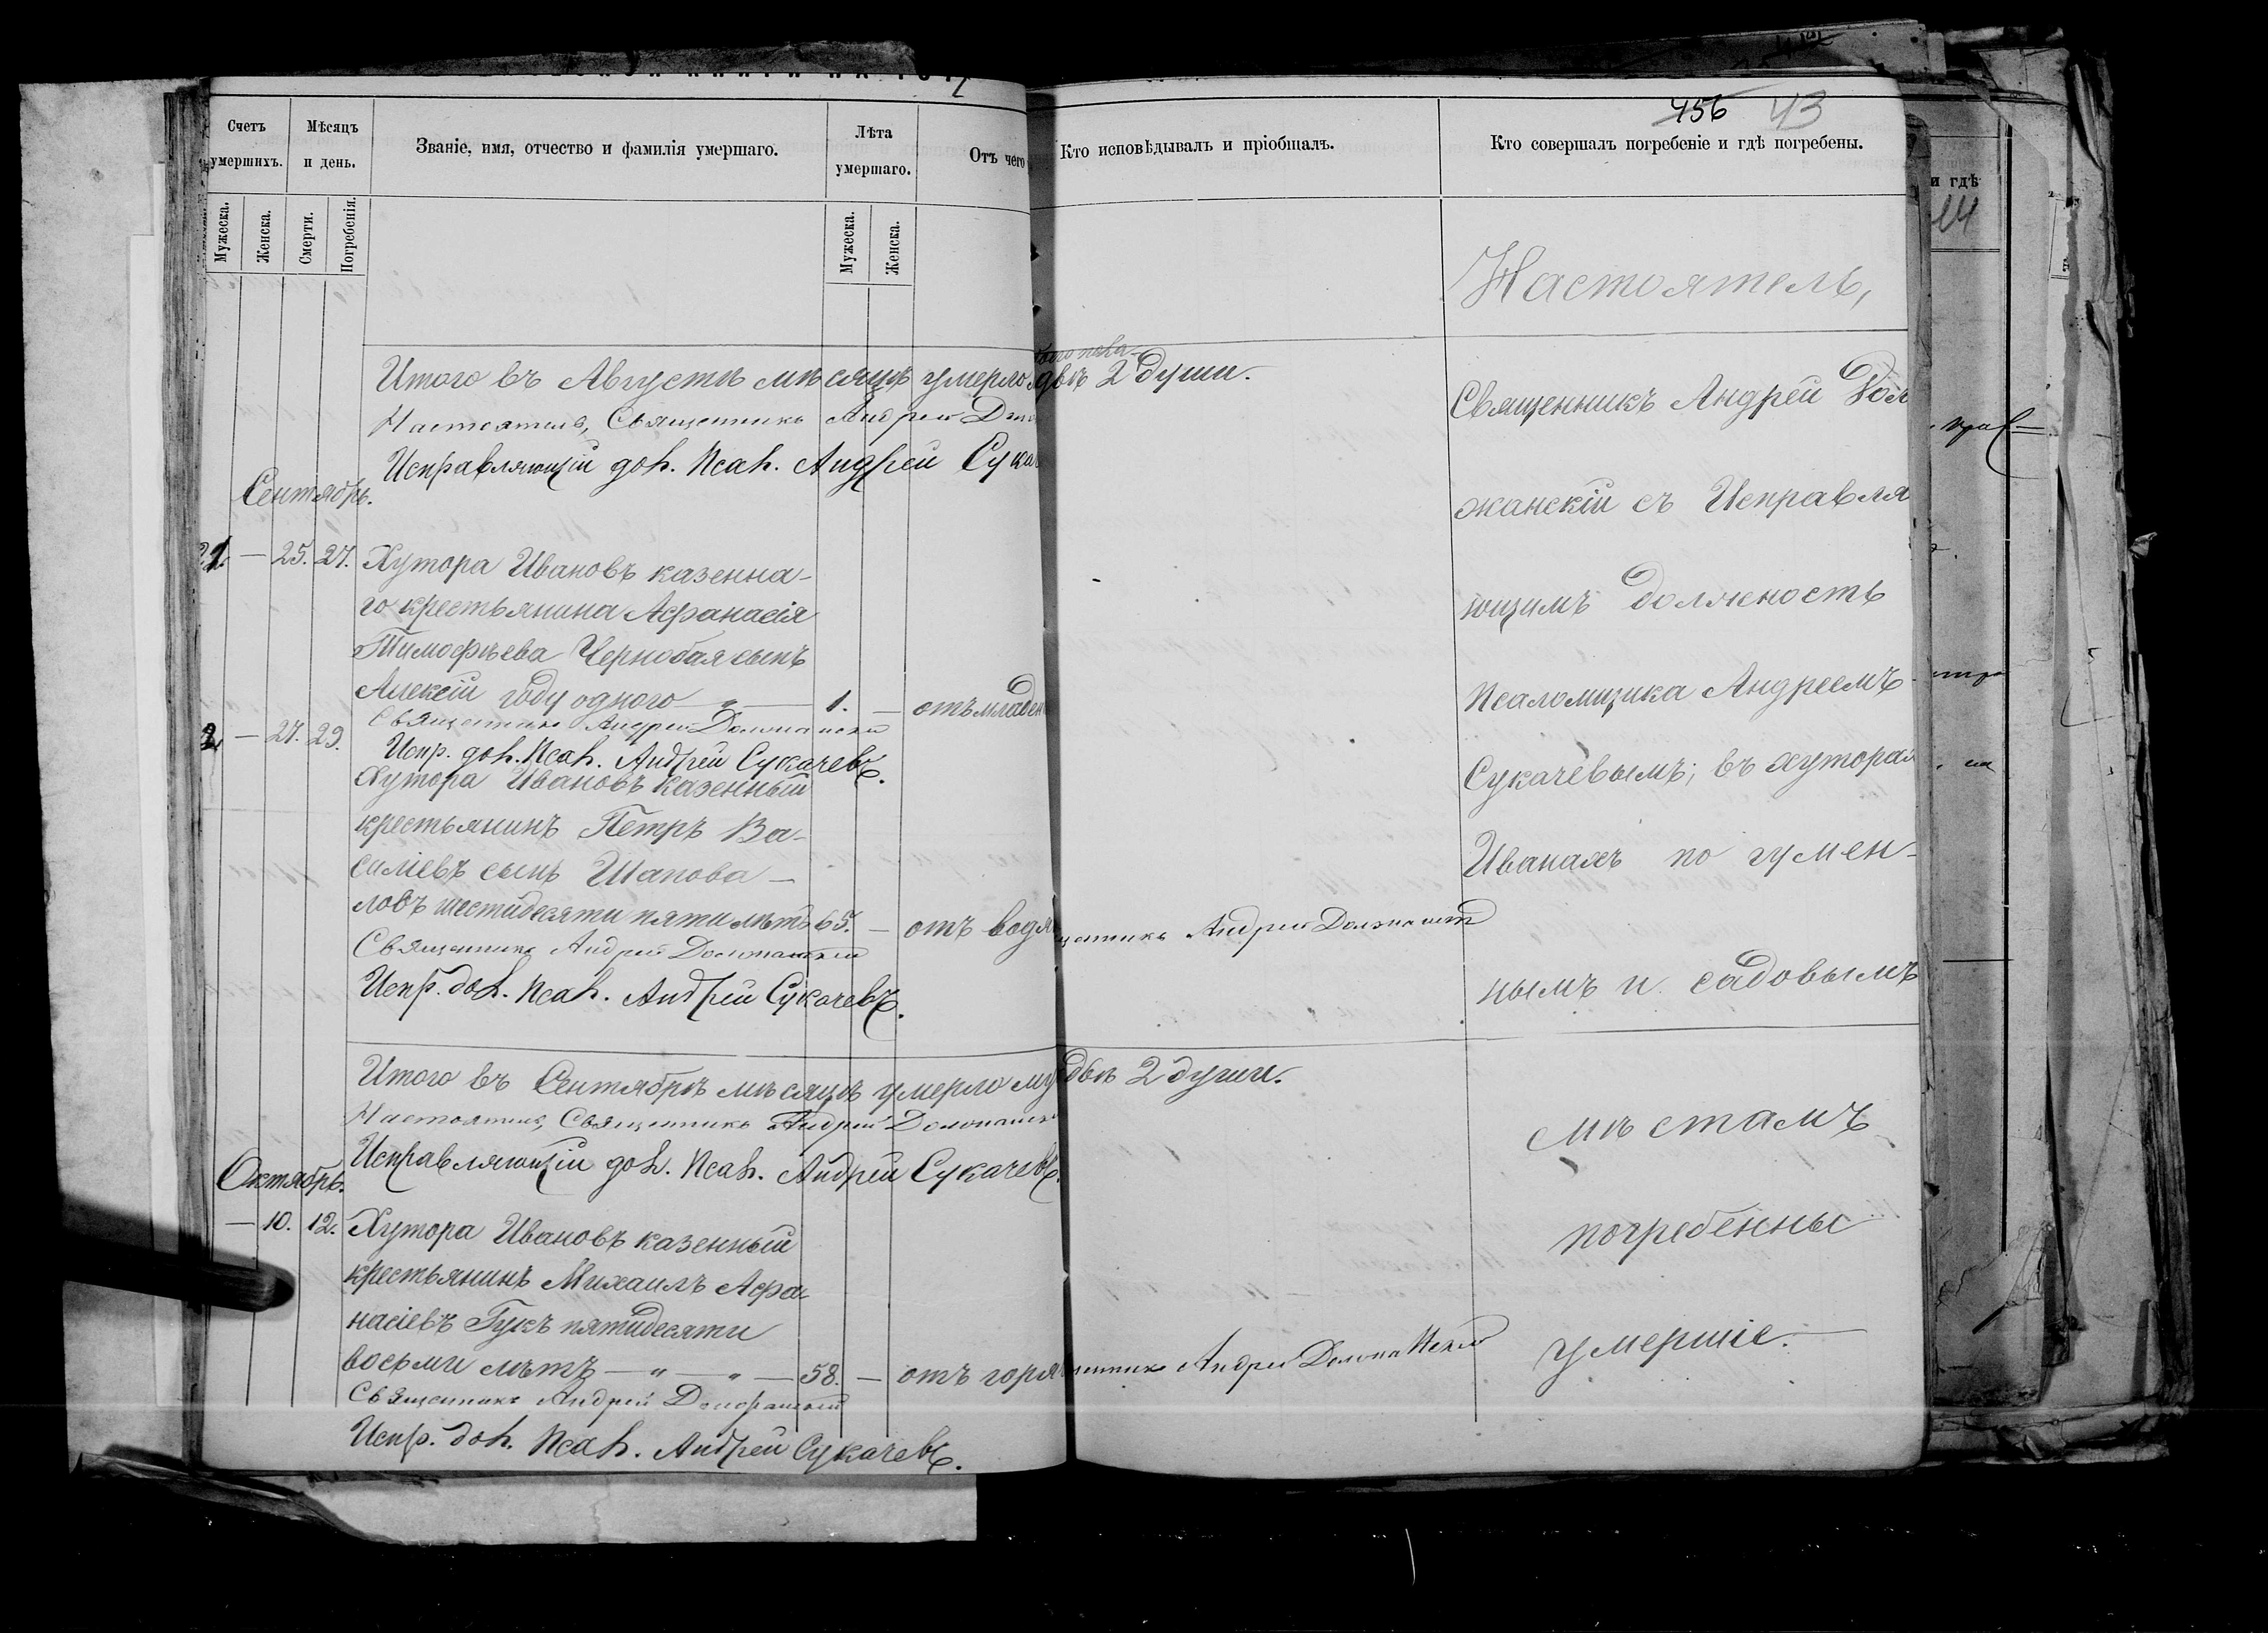 456 43
Счетъ умершихъ.
Мѣсяцъ и день.
Званіе, имя, отчество и фамилія умершаго.
Лѣта умершаго.
Отъ чего
Кто исповѣдывалъ и пріобщалъ.
Кто совершалъ погребеніе и гдѣ погребены.
Мужеска.
Женска.
Смерти.
Погребенія.
Мужеска.
Женска.
Итого въ Августѣ мѣсяцѣ умерло двѣ 2 души.
Настоятель, Священникъ Андрей
Исправляющій дол. Псал. Андрей Сука
Сентябрь.
1. — 25. 27. Хутора Ивановъ казенна-
го крестьянина Афанасія
Тимофѣева Чернобая сынъ
Алексій году одного — „ — 1. — отъ младен
Священникъ Андрей Должанскій
Испр. дол. Псал. Андрей Сукачевъ.
2. — 27. 29. Хутора Ивановъ казенный
крестьянинъ Петръ Ва-
силіевъ сынъ Шапова-
ловъ шестидесяти пяти лѣтъ 65. — отъ водя
Священникъ Андрей Должанскій
Испр. дол. Псал. Андрей Сукачевъ.
Итого въ Сентябрѣ мѣсяцѣ умерло му двѣ 2 души.
Настоятель, Священникъ Андрей Должанскі
Исправляющій дол. Псал. Андрей Сукачевъ.
Октябрь.
— 10. 12. Хутора Ивановъ казенный
крестьянинъ Михаилъ Афа-
насіевъ Гукъ пятидесяти
восьми лѣтъ — „ — „ — 58. — отъ горя
Священникъ Андрей Должанскій
Испр. дол. Псал. Андрей Сукачевъ.
щенникъ Андрей Должанскій
щенникъ Андрей Должанскій
Настоятель,
Священникъ Андрей Дол
жанскій съ Исправля
ющимъ должность
Псаломщика Андреемъ
Сукачевымъ; въ хуторах
Иванахъ по гумен-
нымъ и садовымъ
мѣстамъ
погребенны
умершіе.
и гдѣ